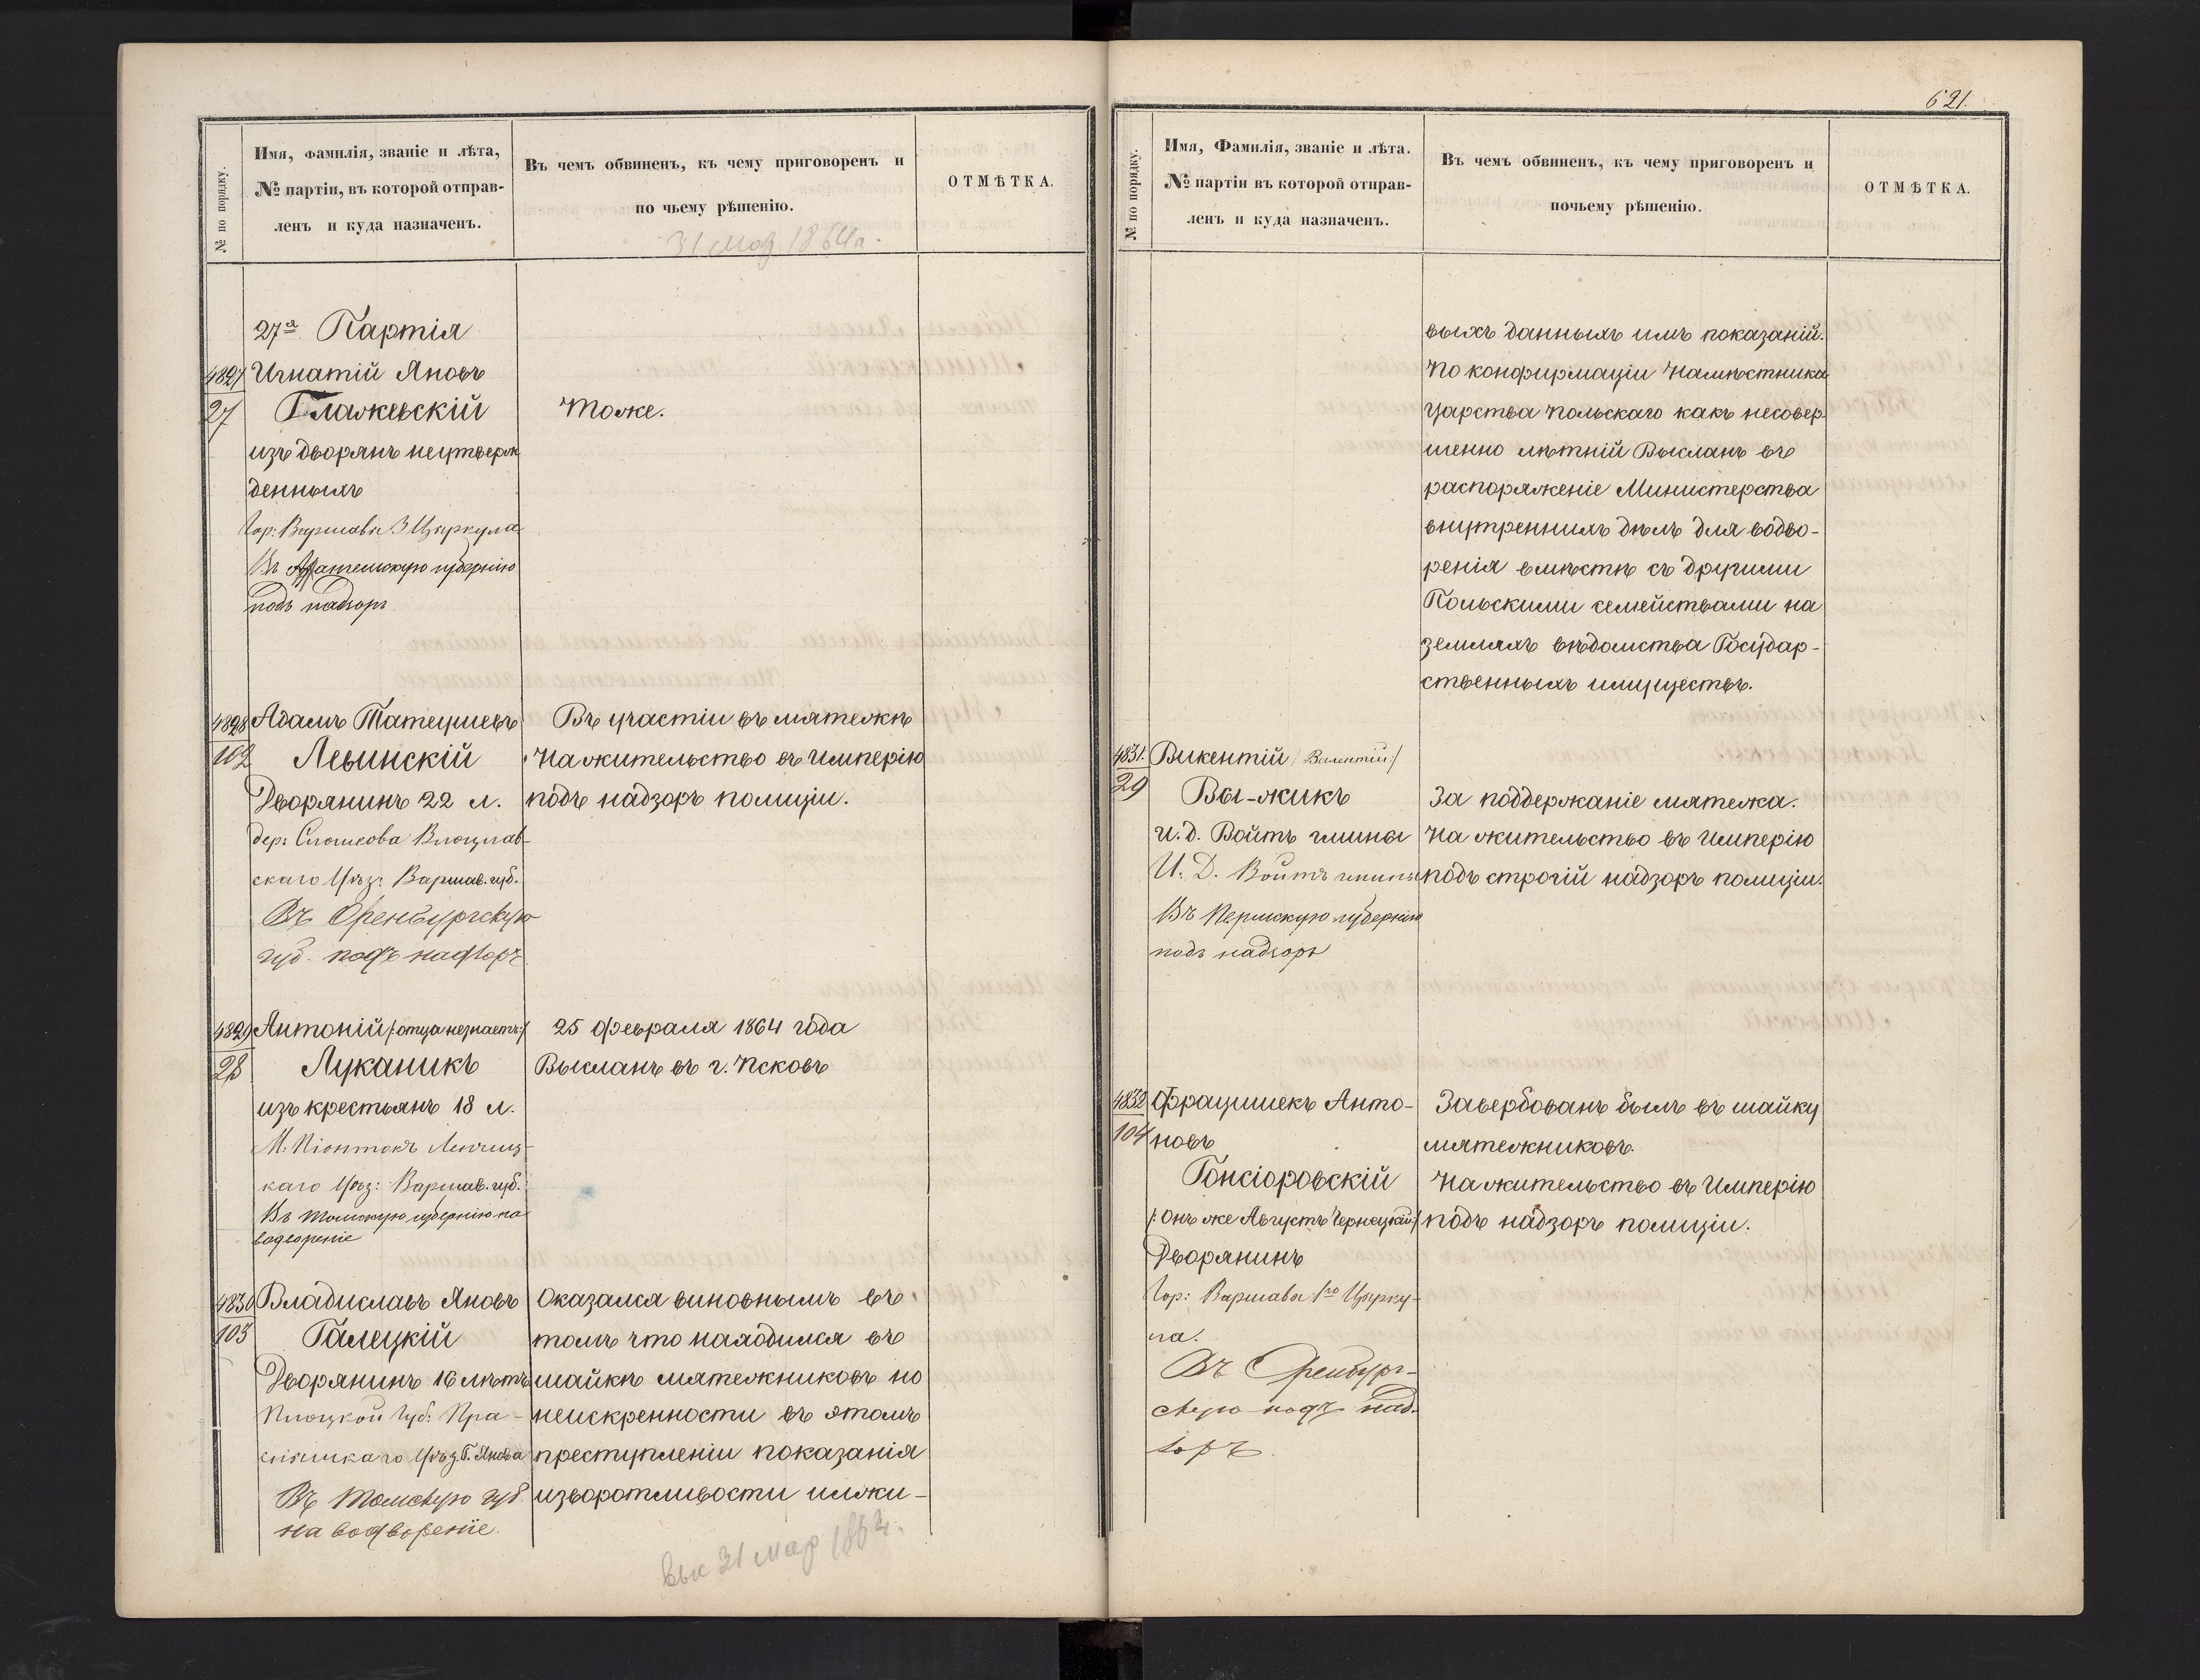 № по порядку.
Имя, Фамилія, званіе и лѣта,
№ партіи, въ которой отправ-
ленъ и куда назначенъ.
Въ чемъ обвиненъ, къ чему приговоренъ и
по чьему рѣшенію.
ОТМѢТКА.
31 Мар 1864 г.
27я Партія
4827
27
Игнатій Яновъ
Глажевскій
изъ дворянъ неутверж
денныхъ
Гор: Варшавы 3 Циркула
Въ губернію
подъ надзоръ
Тоже.
4828
102
Адамъ Татеушевъ
Левинскій
Дворянинъ 22 л.
дер: Влоцлав-
скаго Уѣз: Варшав. губ.
Въ Оренбургскую
губ. подъ надзоръ
Въ участіи въ мятежѣ
На жительство въ Имперію
подъ надзоръ полиціи.
4829
28
Антоній /:отца незнаетъ:/
Луканикъ
изъ крестьянъ 18 л.
М. Піонтокъ Ленчиц-
каго Уѣз: Варшав. губ.
Въ Томскую губернію на
водвореніе
25 февраля 1864 года
Высланъ въ г. Псковъ
4830
103
Владиславъ Яновъ
Галецкій
Дворянинъ 16 лѣтъ
Плоцкой Губ: Пра-
снышкаго Уѣз. Г. Янова
Въ Томскую губ.
на водвореніе.
Оказался виновнымъ въ
томъ что находился въ
шайкѣ мятежниковъ но
неискренности въ этомъ
преступленіи показанія
изворотливости и лжи-
Вы 31 Мар 1864.
621.
№ по порядку.
Имя, Фамилія, званіе и лѣта.
№ партіи въ которой отправ-
ленъ и куда назначенъ.
Въ чемъ обвиненъ, къ чему приговоренъ и
почьему рѣшенію.
ОТМѢТКА.
выхъ данныхъ имъ показаній.
По конфирмаціи Намѣстника
Царства Польскаго какъ несовер-
шенно лѣтній Высланъ въ
распоряженіе Министерства
внутреннихъ дѣлъ для водво-
ренія вмѣстѣ съ другими
Польскими семействами на
земляхъ вѣдомства Государ-
ственныхъ имуществъ.
4831.
29
Викентій / Валентій:/
Вы-жикъ
И. д. Войтъ гмины
И. Д. Войтъ гмины
Въ Пермскую губернію
подъ надзоръ
За поддержаніе мятежа.
На жительство въ Имперію
подъ строгій надзоръ полиціи.
4832
104
Францишекъ Анто-
новъ
Гонсіоровскій
/:онъ же Августъ Чернецкій:/
Дворянинъ
Гор: Варшавы 1го Цирку-
ла.
Въ Оренбург-
скую подъ над-
зоръ.
Завербованъ былъ въ шайку
мятежниковъ.
На жительство въ Имперію
подъ надзоръ полиціи.